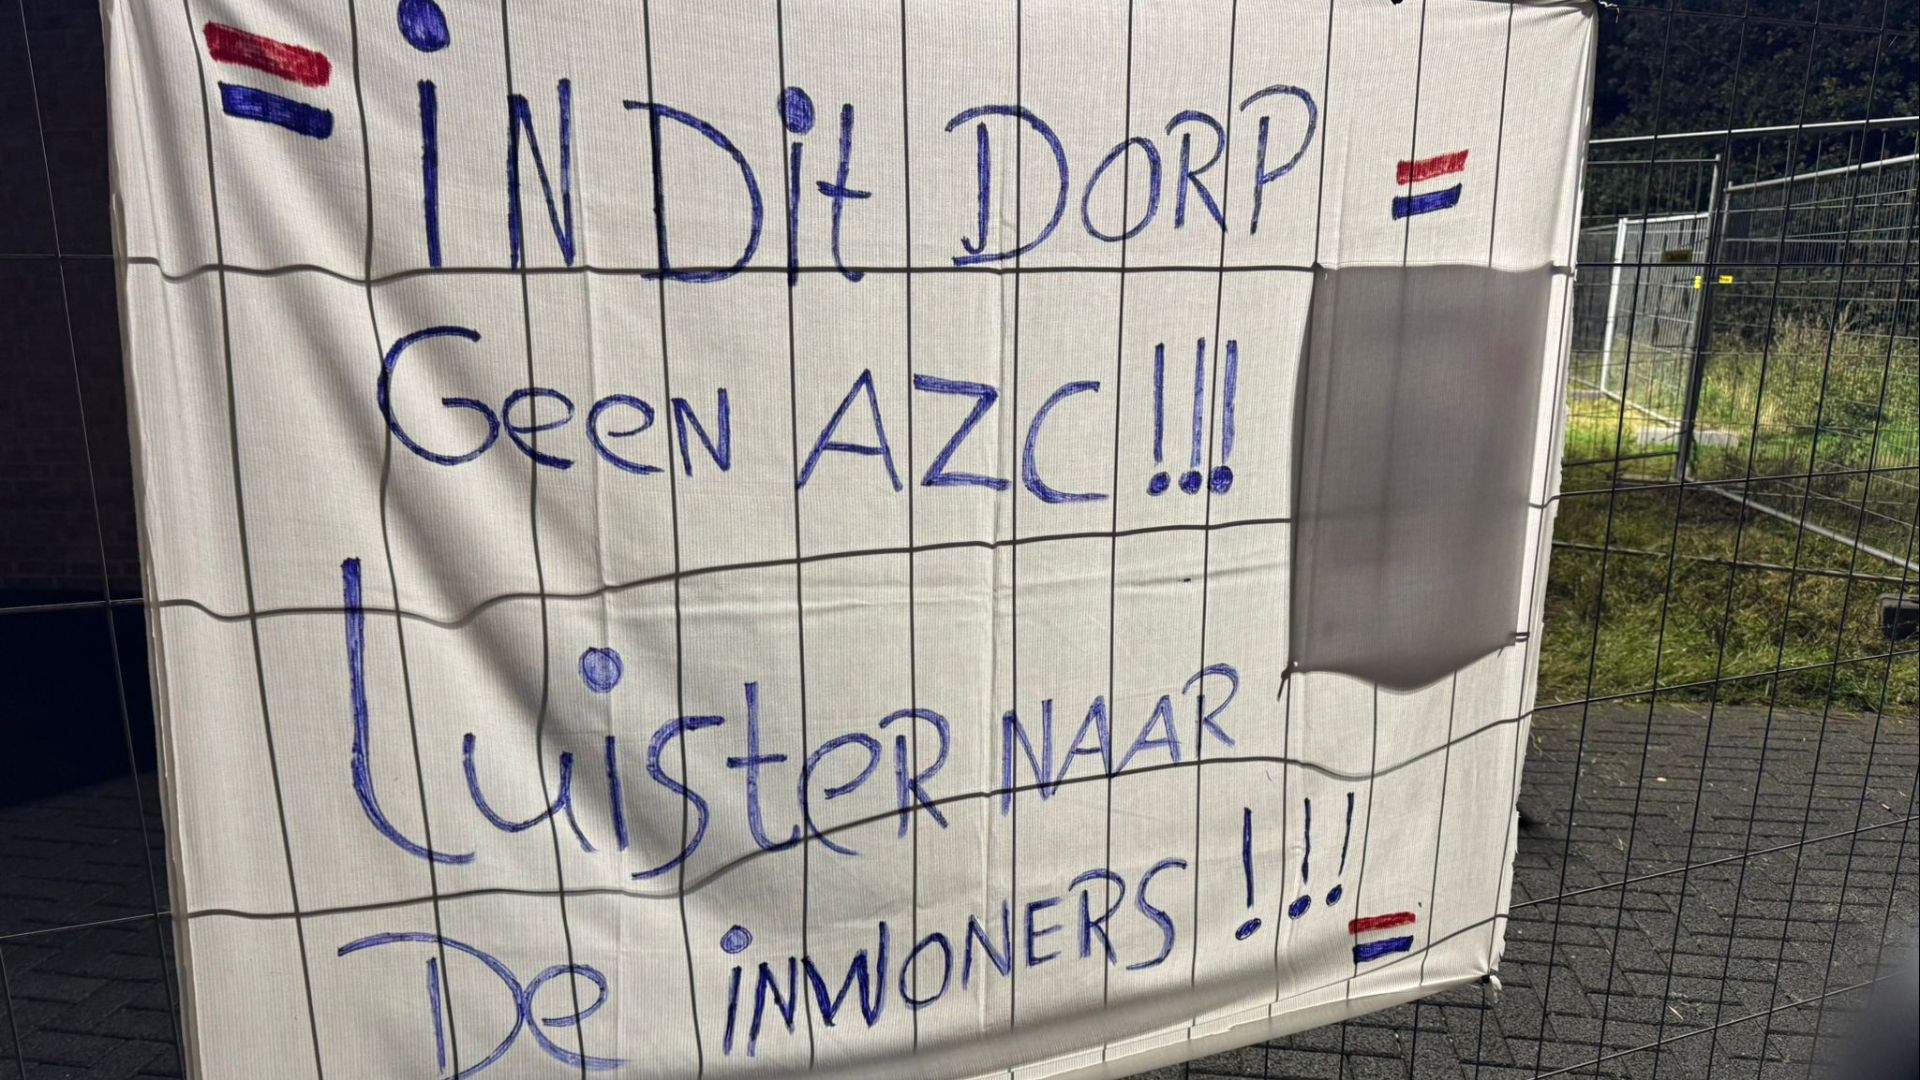 iN Dit DORP
Geen AZC!!!
LuisteR NAAR
De iNWONERS!!!